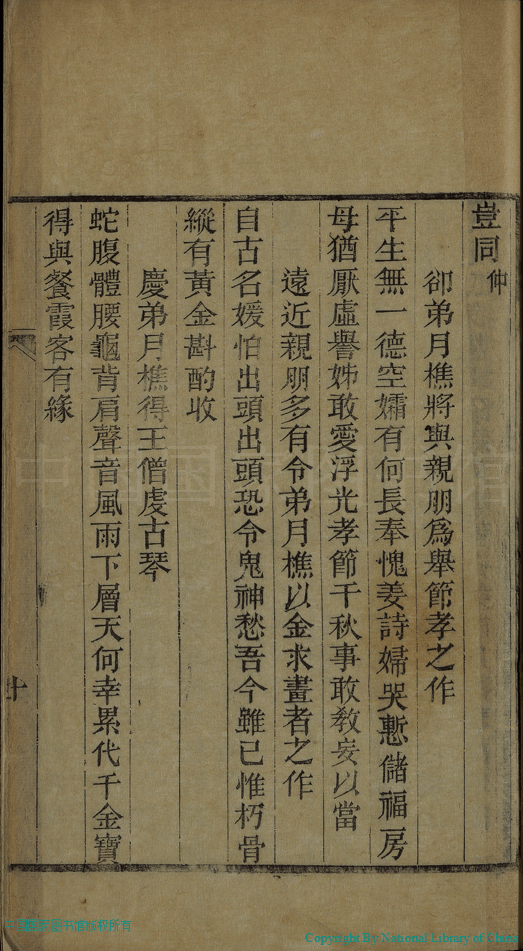 豈同仲
卻弟月樵將與親朋為舉節孝之作
平生無一德空孀有何長奉愧姜詩婦哭慙儲福房
母猶厭虛譽姊敢愛浮光孝節千秋事敢教妄以當
遠近親朋多有令弟月樵以金求畫者之作
自古名媛怕出頭出頭恐令鬼神愁吾今雖已惟朽骨
縱有黃金斟酌收
慶弟月樵得王僧虔古琴
蛇腹體腰龜背肩聲音風雨下層天何幸累代千金寶
得與餐霞客有緣
十
Copyright By National Library of China